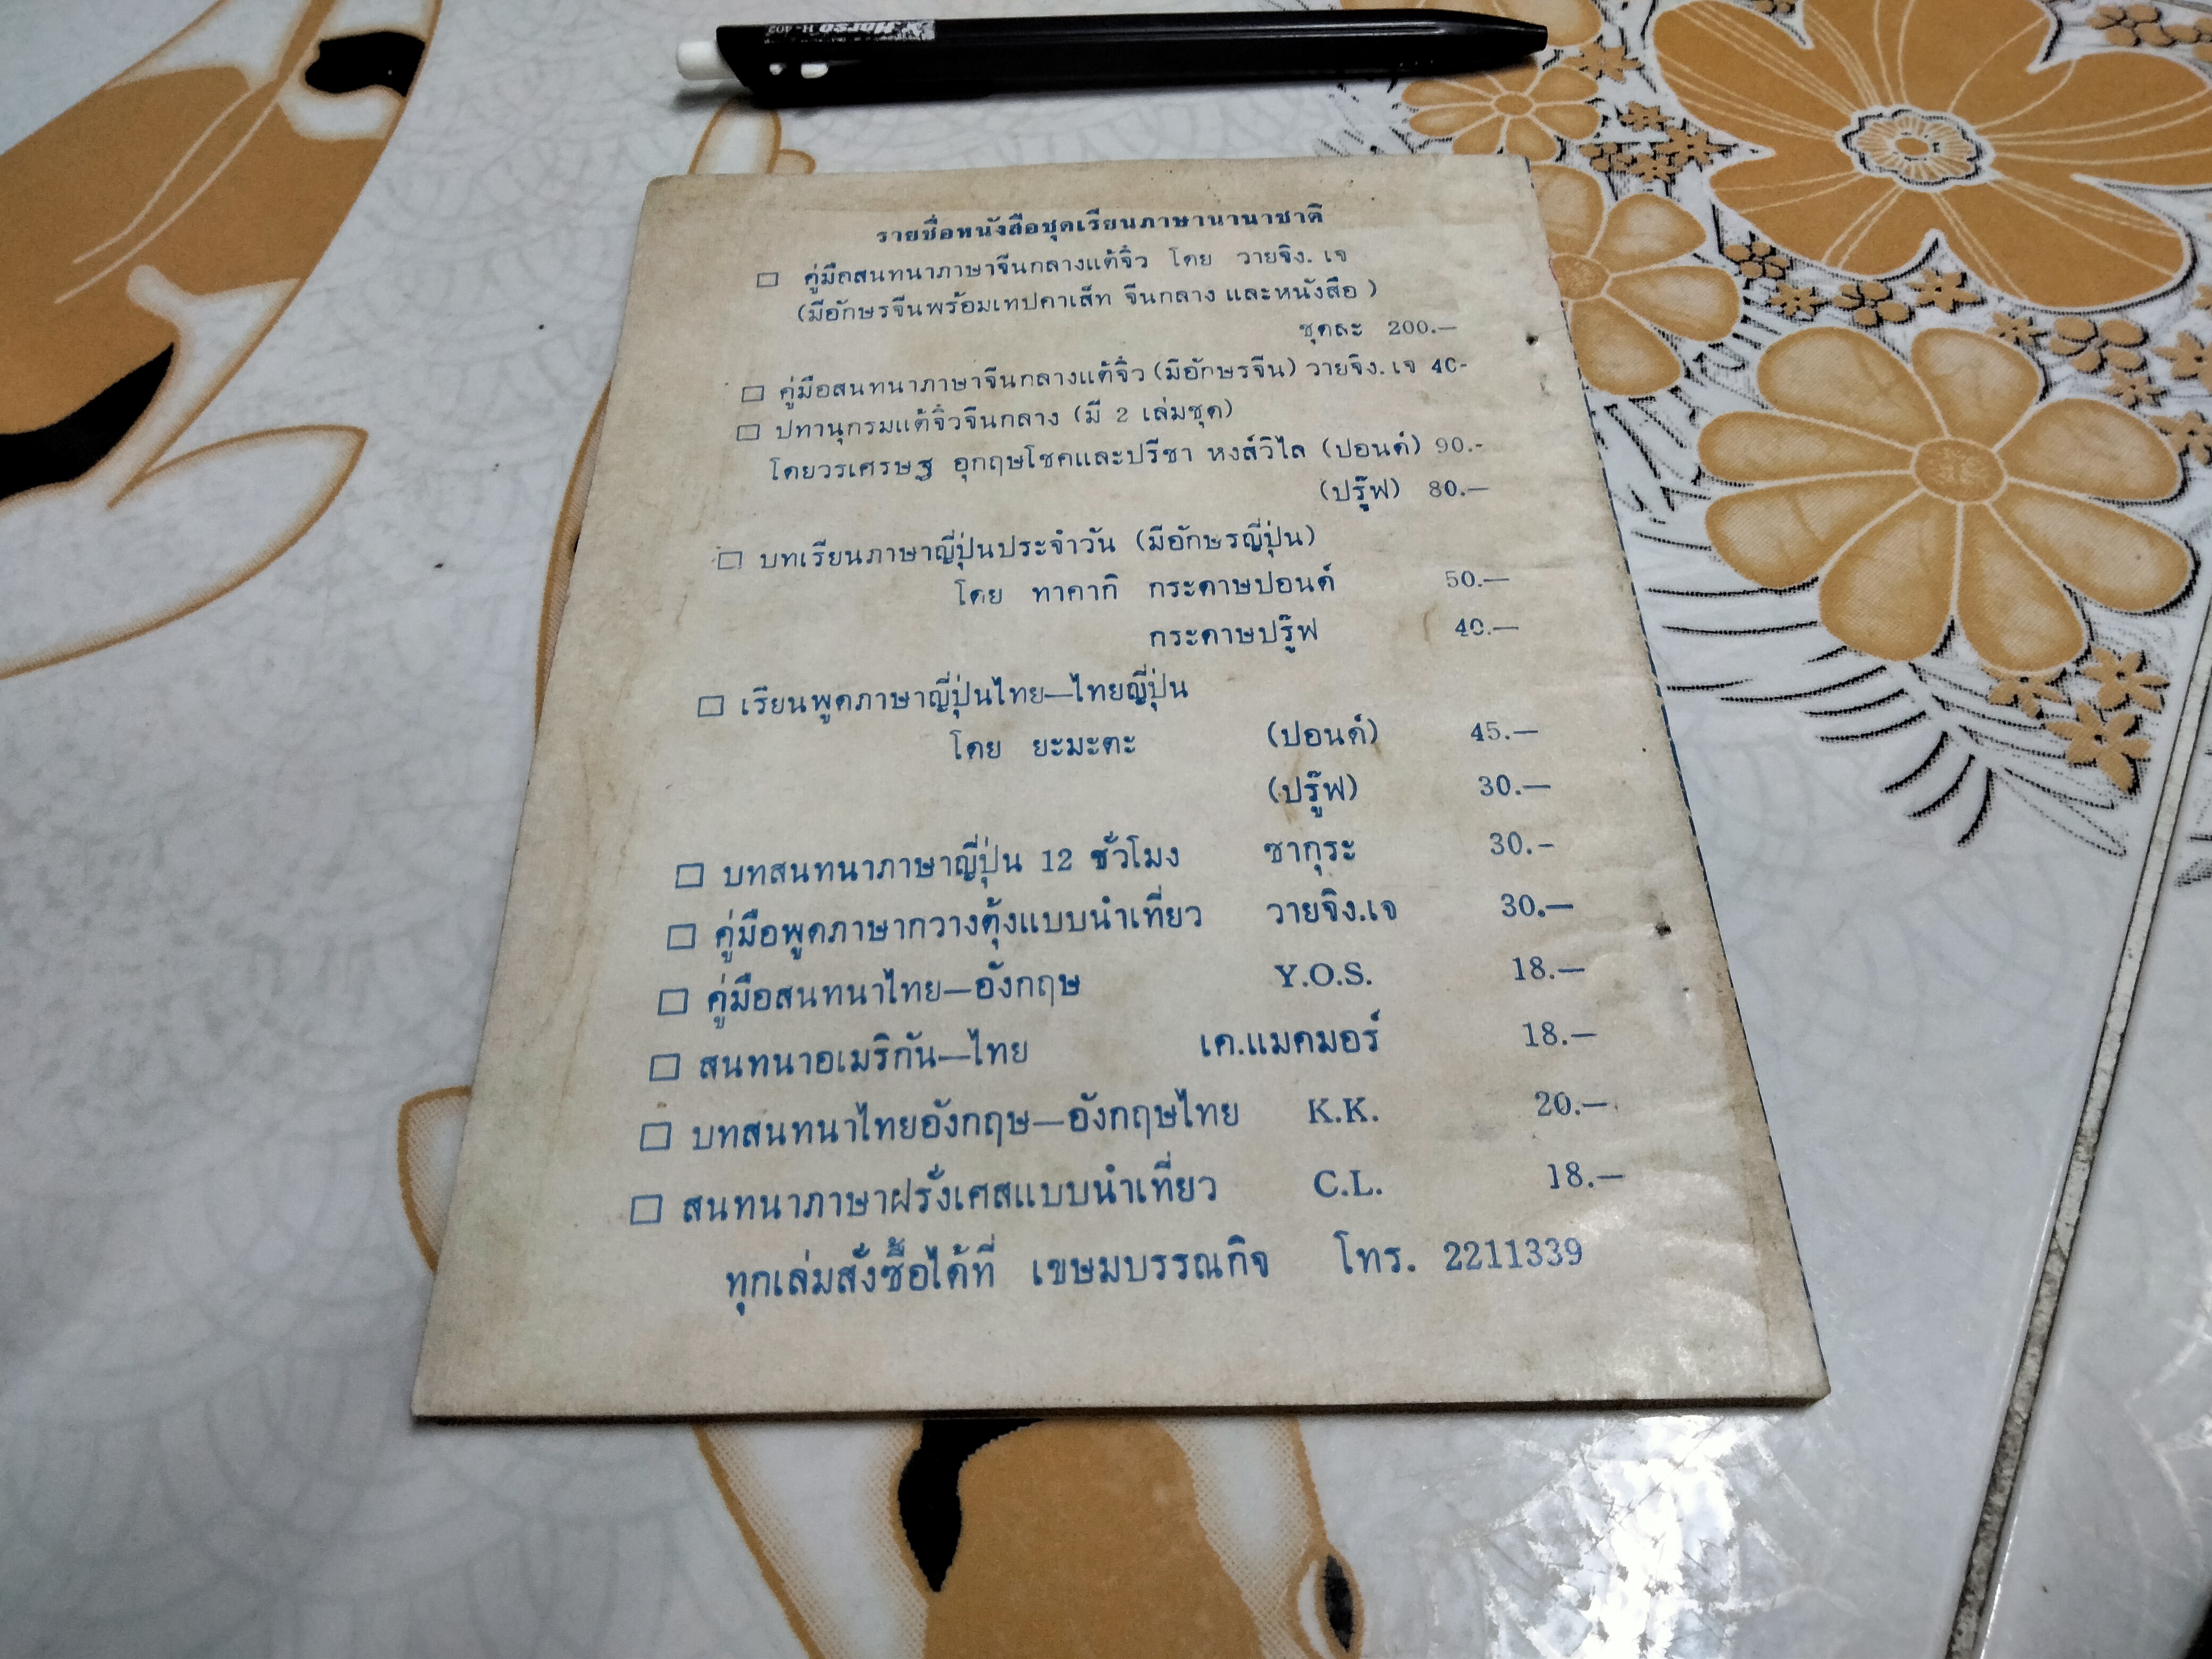 Horse H-402
รายชื่อหนังสือชุดเรียนภาษานานาชาติ
□ คู่มือสนทนาภาษาจีนกลางแต้จิ๋ว โดย วายจิง. เจ
(มีอักษรจีนพร้อมเทปคาเส็ท จีนกลาง และหนังสือ)
ชุดละ 200.—
□ คู่มือสนทนาภาษาจีนกลางแต้จิ๋ว (มีอักษรจีน) วายจิง. เจ 40-
□ ปทานุกรมแต้จิ๋วจีนกลาง (มี 2 เล่มชุด)
โดยวรเศรษฐ อุกฤษโชคและปรีชา หงส์วิไล (ปอนด์) 90.-
(ปรู๊ฟ) 80.—
□ บทเรียนภาษาญี่ปุ่นประจำวัน (มีอักษรญี่ปุ่น)
โดย ทาคากิ กระดาษปอนด์ 50.—
กระดาษปรู๊ฟ 40.—
□ เรียนพูดภาษาญี่ปุ่นไทย—ไทยญี่ปุ่น
โดย ยะมะดะ (ปอนด์) 45.—
(ปรู๊ฟ) 30.—
□ บทสนทนาภาษาญี่ปุ่น 12 ชั่วโมง ซากุระ 30.-
□ คู่มือพูดภาษากวางตุ้งแบบนำเที่ยว วายจิง.เจ 30.—
□ คู่มือสนทนาไทย—อังกฤษ Y.O.S. 18.—
□ สนทนาอเมริกัน—ไทย เค.แมคมอร์ 18.—
□ บทสนทนาไทยอังกฤษ—อังกฤษไทย K.K. 20.—
□ สนทนาภาษาฝรั่งเศสแบบนำเที่ยว C.L. 18.—
ทุกเล่มสั่งซื้อได้ที่ เขษมบรรณกิจ โทร. 2211339